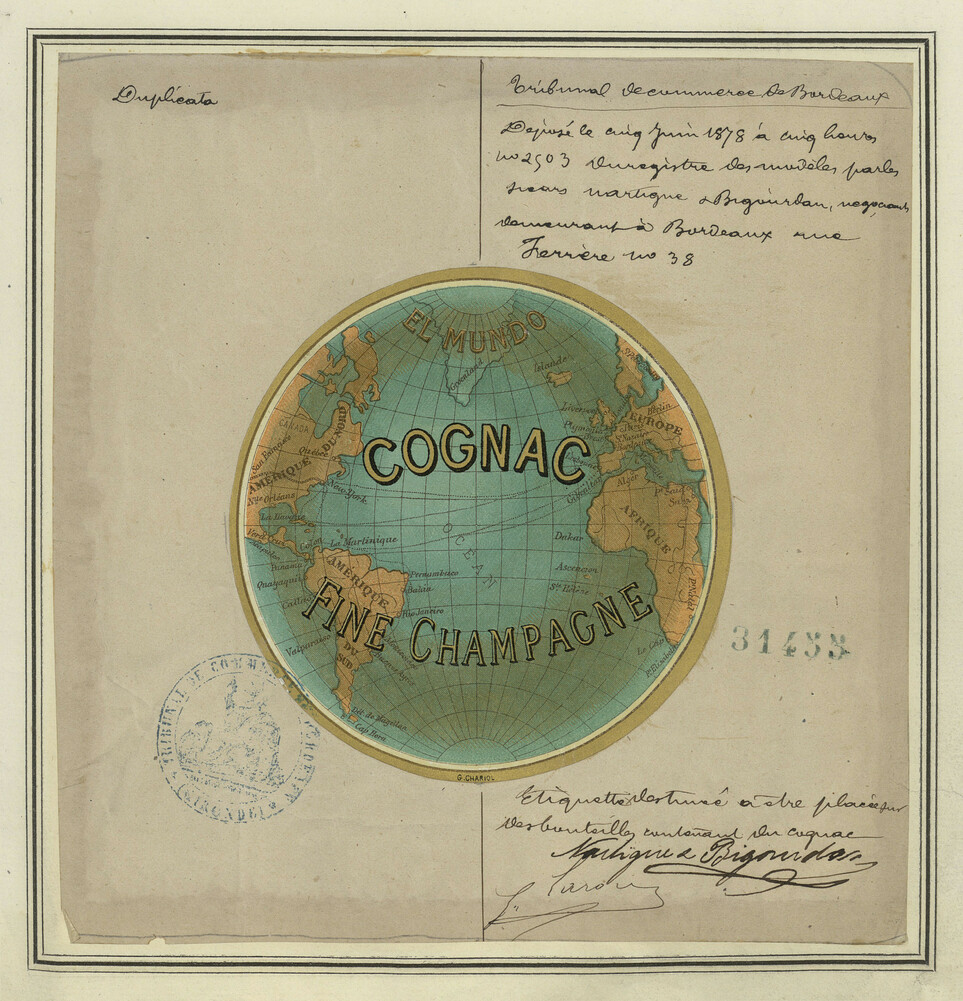 Duplicata
Tribunal de commerce de Bordeaux
Déposé le cinq Juin 1878 à cinq heures
no 2503 du registre des modèles par les
sieurs Martigue & Bigourdan, négociants
demeurant à Bordeaux rue
Ferrère no 38
EL MUNDO
Groenland
Islande
Liverpool
Berlin
EUROPE
Plymouth
Paris
St Nazaire
CANADA
COGNAC
San Francisco
Québec
AMÉRIQUE DU NORD
Gibraltar
Alger
New-York
Nlle Orléans
Pt Saïd
Suez
La Havane
AFRIQUE
Vera Cruz
Colon
La Martinique
OCÉAN
Dakar
Acapulco
Panama
AMÉRIQUE
Pernambuco
Ascension
Quayaquil
Bahia
Ste Hélène
Callao
Rio Janeiro
FINE CHAMPAGNE
Valparaiso
DU
SUD
Le Cap
Pt Elisabeth
Dét. de Magellan
Cap Horn
31433
TRIBUNAL DE COMMERCE
(GIRONDE)
G. CHARIOL
Etiquette destinée a être placée sur
des bouteilles contenant du cognac
Martigue & Bigourdan